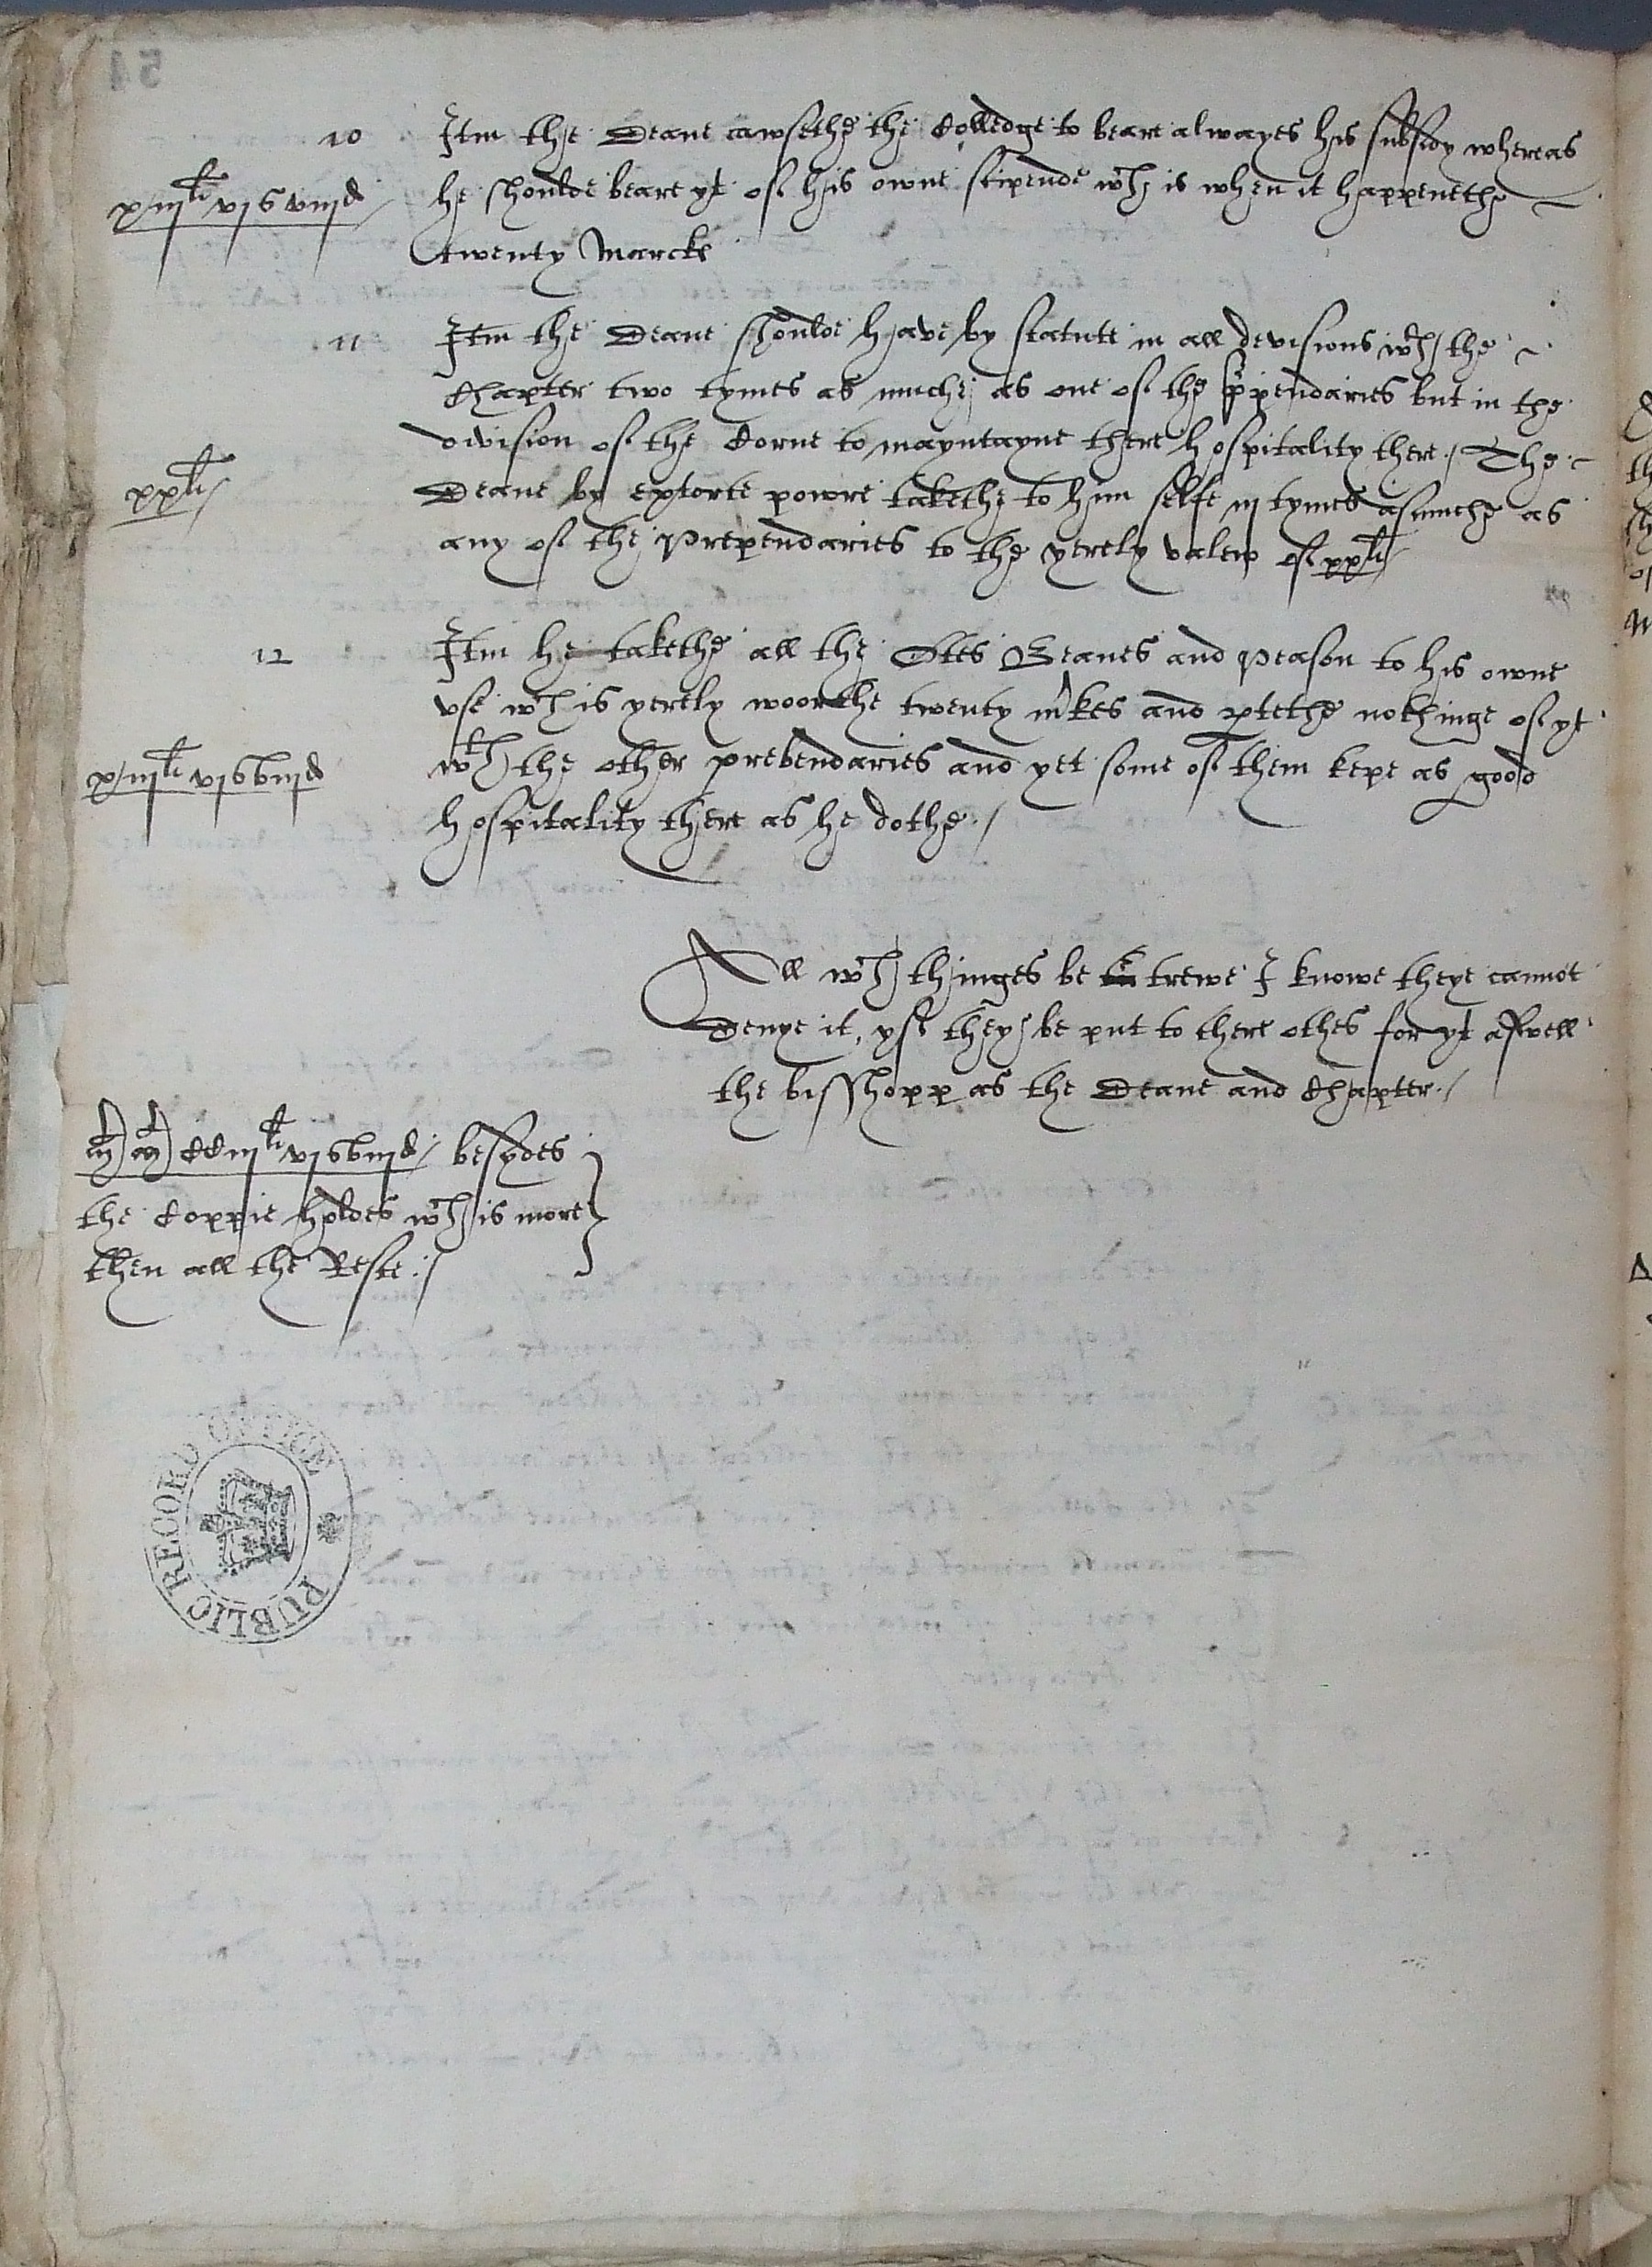 54
10 Itm the Deane cawsethe the Colledge to beare alwayes his subsidy whereas
xiijli vjs viijd he shoulde beare yt of his owne stipende wch is when it happenethe
twenty Marcke
11 Itm the Deane shoulde have by statute in all devisions wth the
Chapter two tymes as muche as one of the ppendaries but in the
division of the Corne to mayntayne there hospitality there / The
xxli Deane by extorte powre takethe to him selfe iij tymes asmuche as
any of the Prependaries to the yerely valew of xxli
12 Itm he takethe all the Otes Beanes and Peason to his owne
vse wch is yerely woorthe twenty mkes and ptethe nothinge of yt
xiijli vjs viijd wth the other prebendaries and yet some of them kepe as good
hospitality there as he dothe /
All wch thinges be trewe I knowe theye cannot
denye it, yf they be put to there othes for yt aswell
the bisshopp as the Deane and Chapter /
CCiijli vjs viijd / besydes
the Coppie holdes wch is more
then all the Reste /
PUBLIC RECORD OFFICE